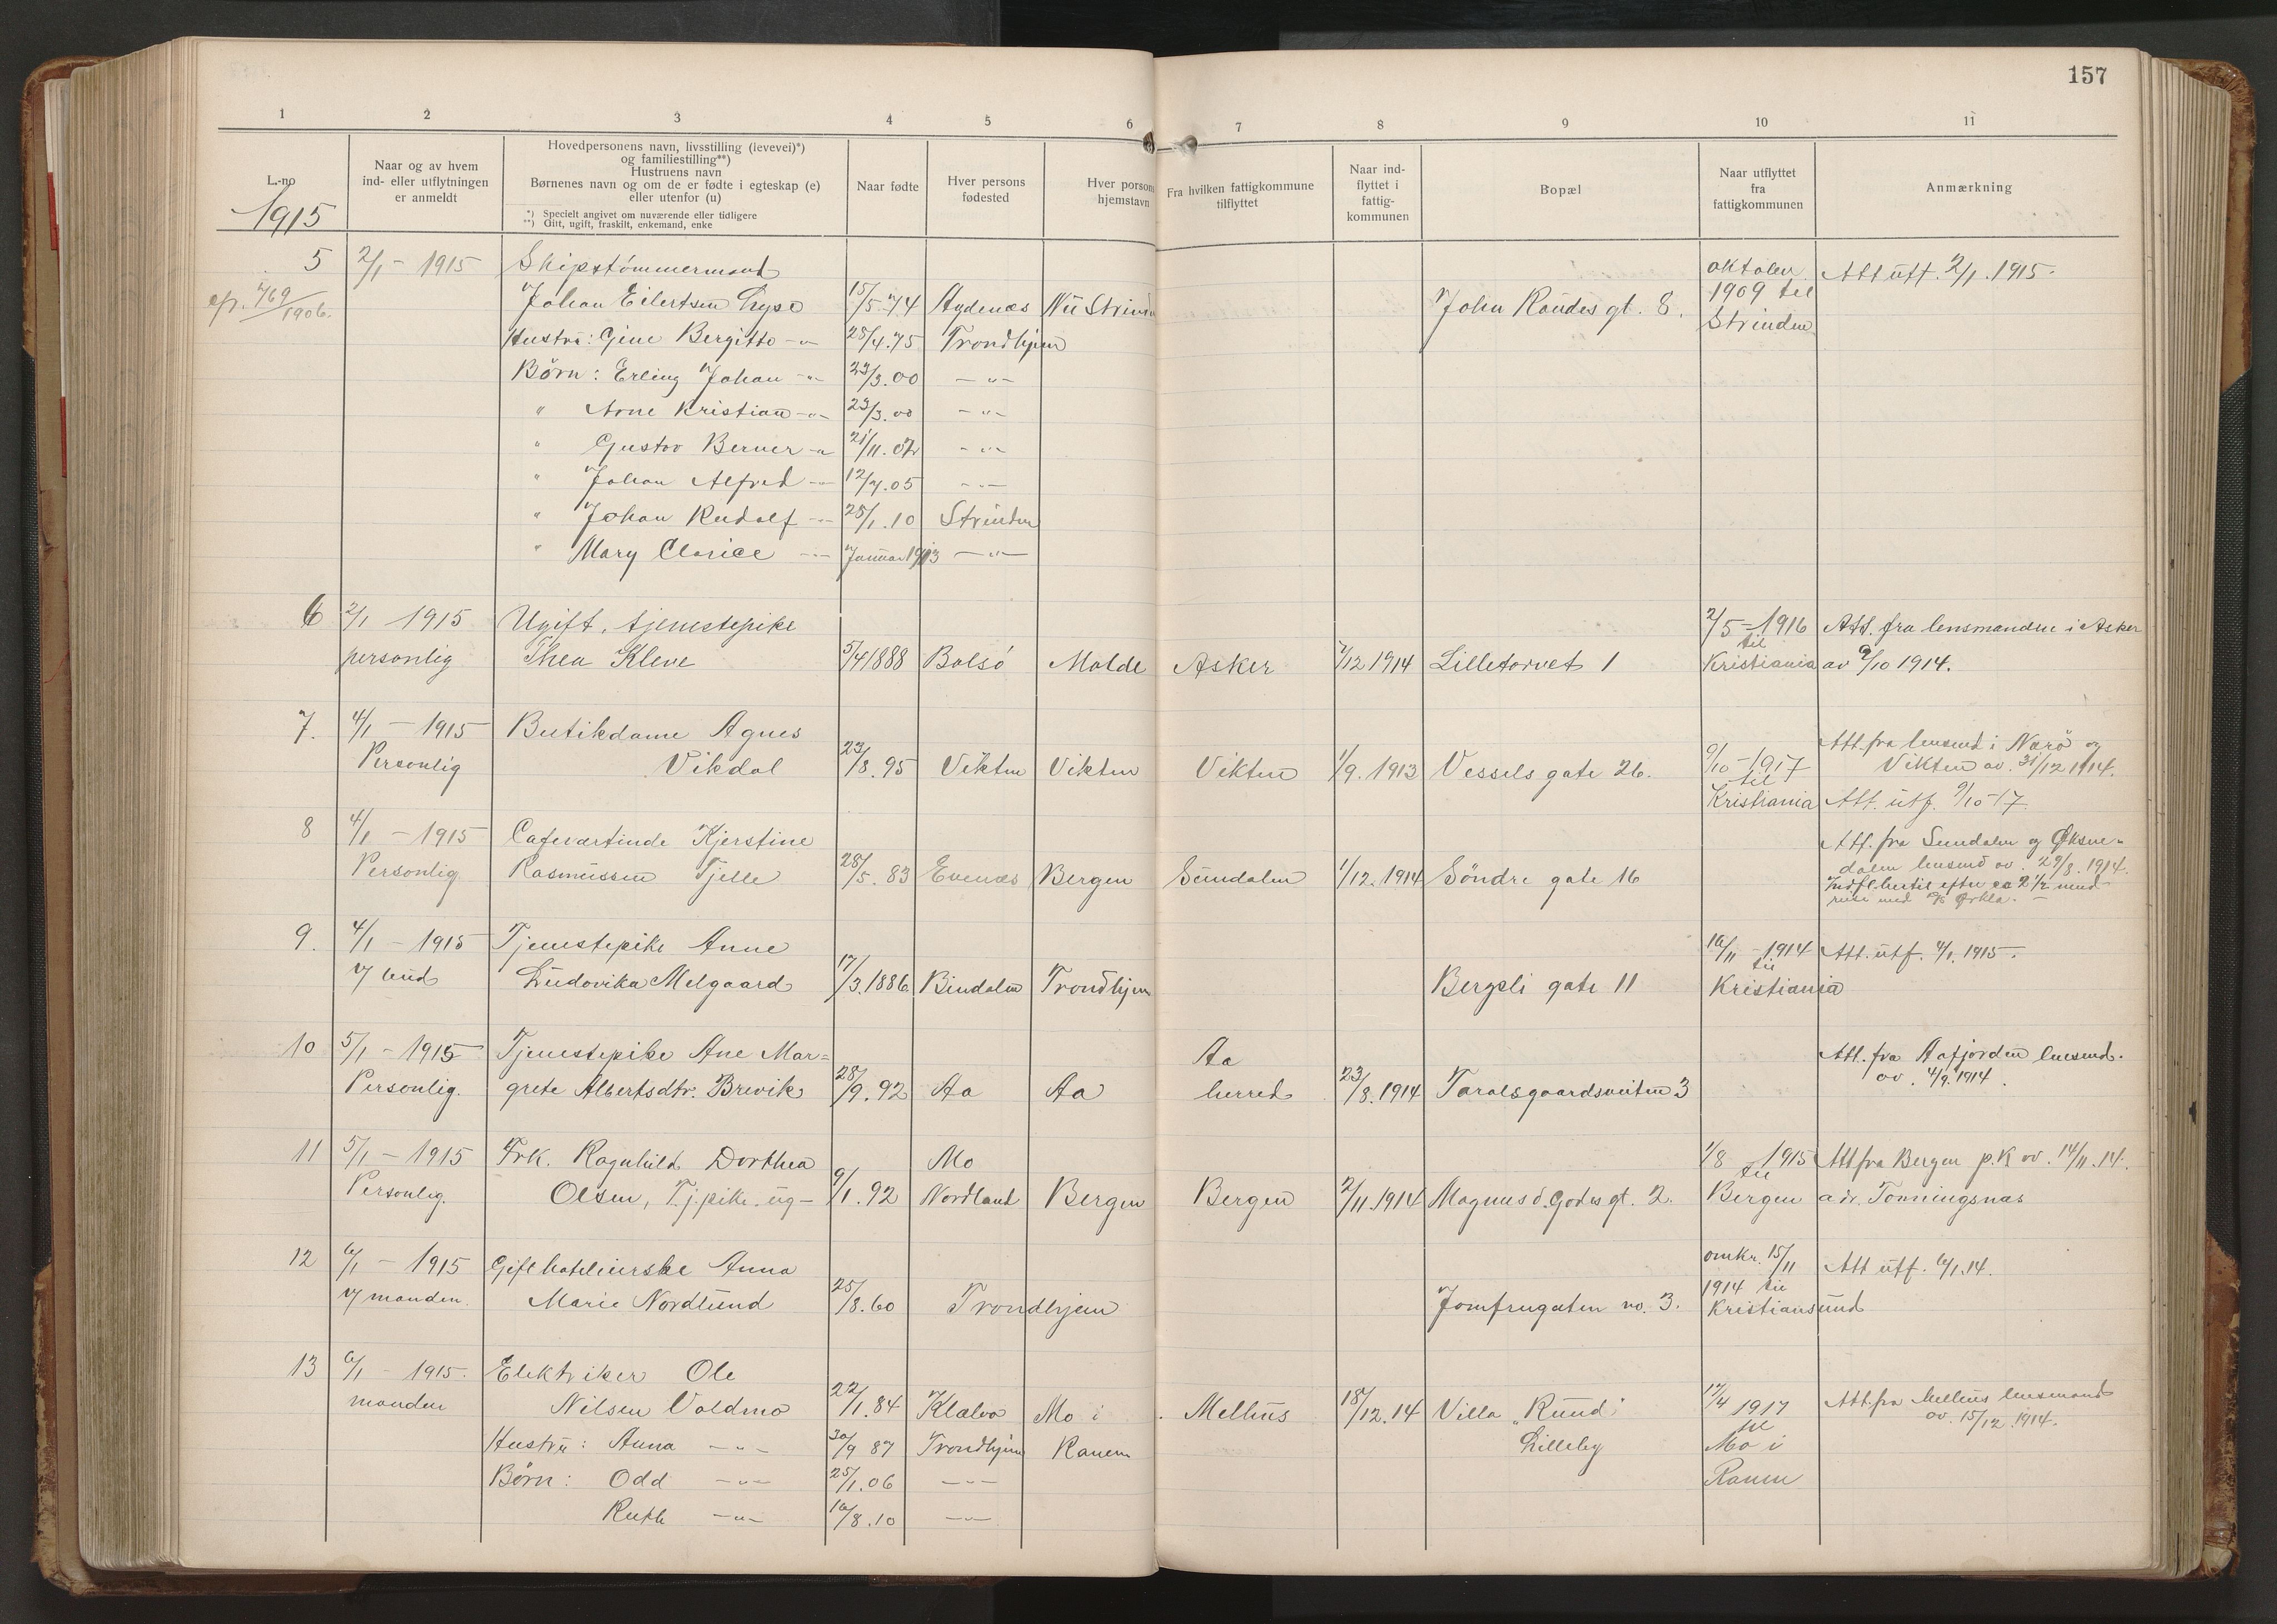 157
1 2 3 4 5 6 7 8 9 10 11
L.-no
Naar og av hvem
ind- eller utflytningen
er anmeldt
Hovedpersonens navn, livsstilling (levevei)*)
og familiestilling**)
Hustruens navn
Børnenes navn og om de er fødte i egteskap (e)
eller utenfor (u)
*) Specielt angivet om nuværende eller tidligere
**) Gift, ugift, fraskilt, enkemand, enke
Naar fødte
Hver persons
fødested
Hver persons
hjemstavn
Fra hvilken fattigkommune
tilflyttet
Naar ind-
flyttet i
fattig-
kommunen
Bopæl
Naar utflyttet
fra
fattigkommunen
Anmærkning
1915
5 2/1 - 1915 Skipstømmermand oktober Att utf. 2/1. 1915.
1906. Johan Eilertsen 15/5 74 Nu Strinden John Randes gt. 8. 1909 til
Strinden
Hustru: Gine Bergitte -"- 28/4.75 Trondhjem
Børn: Erling Johan -"- 23/3.00 -"-
" Arne Kristian -"- 23/3.00 -"-
" Gustav Berner -"- 21/11. -"-
" Johan Alfred -"- 12/7.05 -"-
" Johan Rudolf -"- 28/1.10 Strinden
" Mary Clarice -"- Januar 1913 -"-
6 2/1 1915 Ugift. tjenestepike 2/5 - 1916 Att. fra lensmanden i Asker
til
personlig Thea Kleve 5/4 1888 Bolsö Molde Asker 1/12 1914 Lilletorvet 1 Kristiania av 9/10 1914.
7. 4/1 - 1915 Butikdame Agnes Att. fra lensmd i Nærö og
Personlig Vikdal 23/8.95 Vikten Vikten Vikten 1/9. 1913 Vessels gate 26. 9/10 - 1917 Vikten av. 31/12 1914.
til
Kristiania Att. utf. 9/10-17.
8 4/1 - 1915 Cafeværtinde Kjerstine Att. fra Sundalen og Øksen-
Personlig. Rasmussen Tjelle 28/5. 83 Evenæs Bergen Sundalen 1/12. 1914 Söndre gate 16 dalen lensmd av. 29/8. 1914.
Indfl. hertil efter ca 2 1/2 mnd
reise med Orkla. -
9. 4/1 - 1915 Tjenestepike Anne 16/11 - 1914 Att. utf. 4/1. 1915.
til
v/ bud Ludovika Melgaard 17/3. 1886 Bindalen Trondhjem Bergsli gate 11 Kristiania
10 5/1 - 1915 Tjenestepike Ane Mar= Aa Att. fra Aafjorden lensmd.
Personlig. grete Albertsdtr. Brevik 28/9. 92 Aa Aa herred 23/8. 1914 Taralsgaardsveiten 3 av. 4/9. 1914.
11 5/1 - 1915 Frk. Ragnhild Dorthea Mo 1/8 1915 Att fra Bergen p.k av. 14/11.14.
til
Personlig. Olsen, Tj.pike. ug- 9/1. 92 Nordland Bergen Bergen 2/11. 1914 Magnus d. Godes gt. 2. Bergen Tonningsnæs
12 6/1 - 1915 Gift hotelierske Anna omkr. 15/11 Att utf. 6/1.14.
v/ manden. Marie Nordlund 25/8. 60 Trondhjem Jomfrugaten no. 3. 1914 til
Kristiansund
13 6/1 - 1915. Elektriker Ole
manden Nilsen Valdmo 22/1. 84 Mo i Melhus 18/12. 14 Villa "Ruud" 17/4 1917 Att. fra Melhus lensmand
av. 15/12. 1914.
til
Hustru: Anna -"- 30/9 87 Trondhjem Ranen Lilleby Mo i
Børn: Odd -"- 25/1. 06 -"- Ranen
Ruth -"- 16/8. 10 -"-